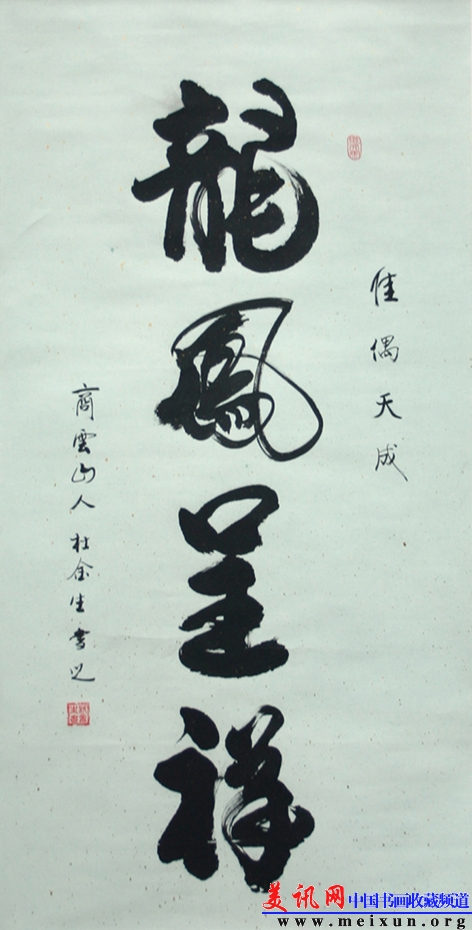 佳偶天成
龍鳳呈祥
商雲山人杜余生書之
美讯网 中国书画收藏频道
www.meixun.org